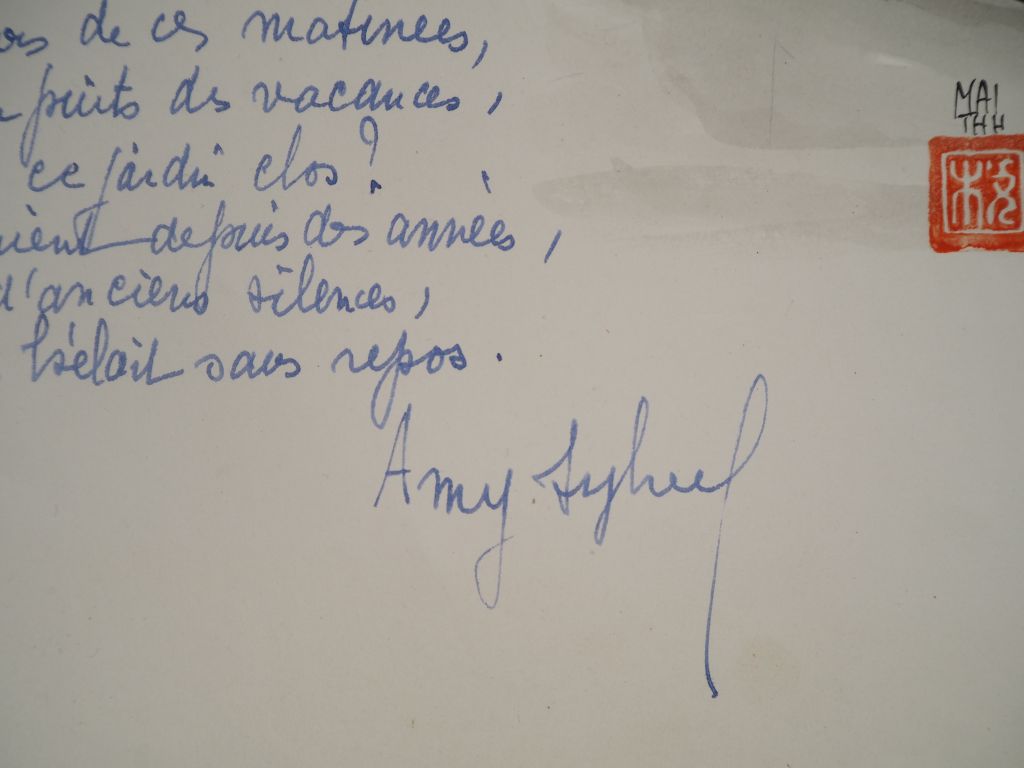 de ces matinées,
puits des vacances,
ce jardin clos ?
depuis des années,
d'anciens silences,
sans repos.
Amy Sylvel
MAI
THH